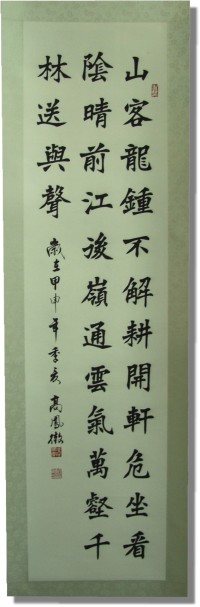 山客龍鍾不解耕開軒危坐看
陰晴前江後嶺通雲氣萬壑千
林送與聲
歲在甲申年季夏 高鳳